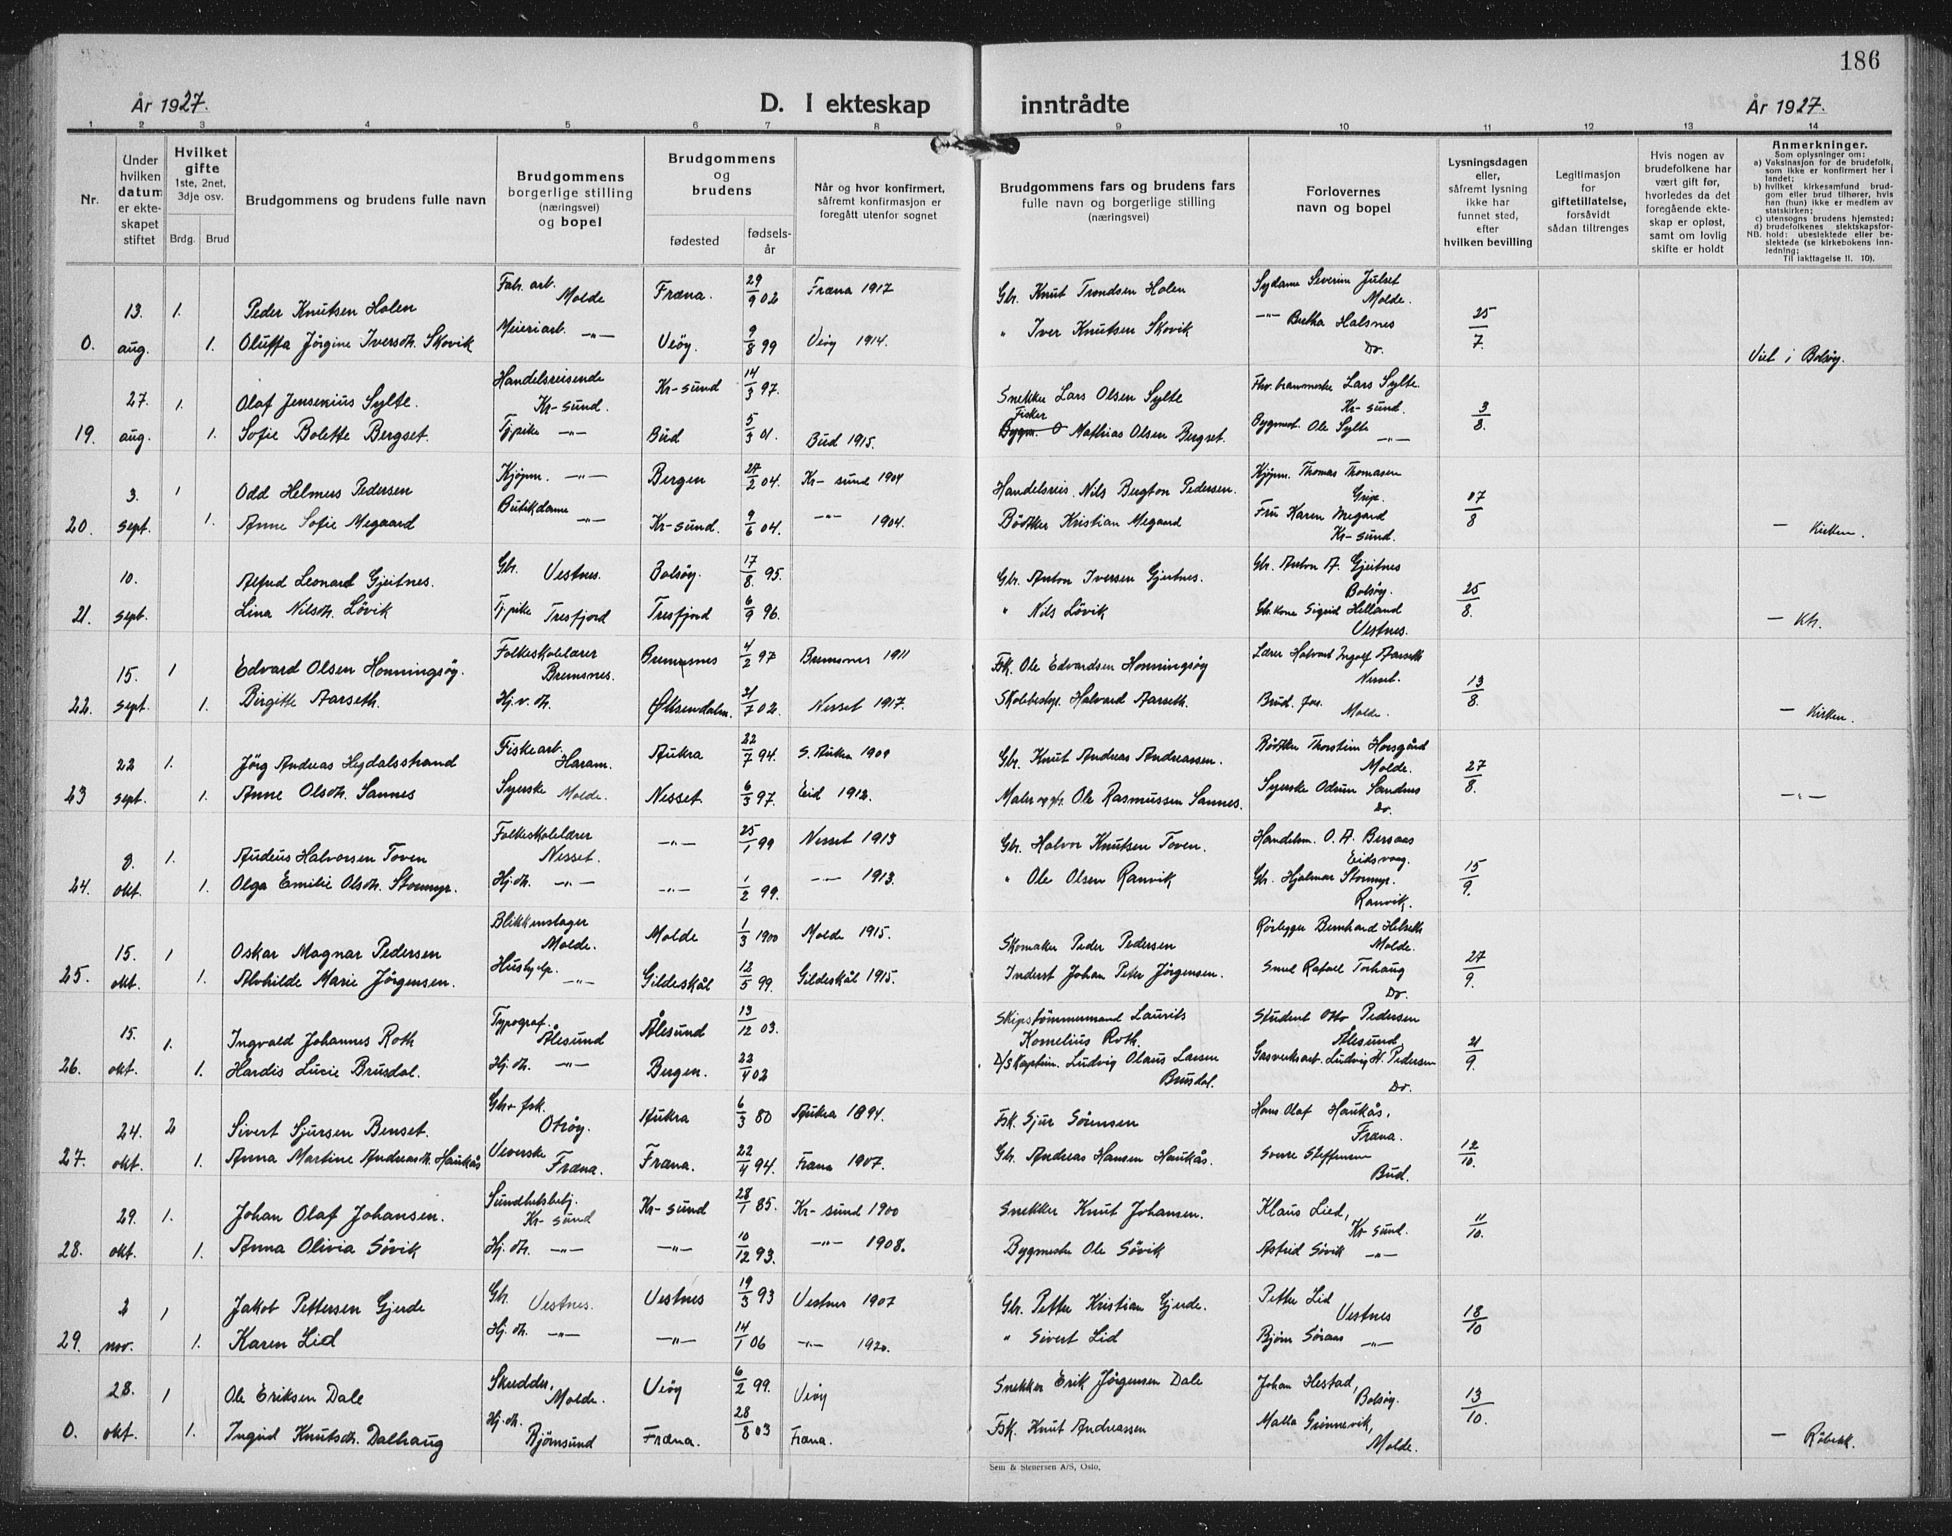 186
År 1927.
D. I ekteskap inntrådte
År 1927.
1 2 3 4 5 6 7 8 9 10 11 12 13 14
Nr.
Under hvilken datum er ekteskapet stiftet
Hvilket gifte 1ste, 2net, 3dje osv.
Brdg. Brud
Brudgommens og brudens fulle navn
Brudgommens borgerlige stilling (næringsvei) og bopel
Brudgommens og brudens
fødested
fødselsår
Når og hvor konfirmert, såfremt konfirmasjon er foregått utenfor sognet
Brudgommens fars og brudens fars fulle navn og borgerlige stilling (næringsvei)
Forlovernes navn og bopel
Lysningsdagen eller, såfremt lysning ikke har funnet sted, efter hvilken bevilling
Legitimasjon for giftetillatelse, forsåvidt sådan tiltrenges
Hvis nogen av brudefolkene har vært gift før, hvorledes da det foregående ekteskap er opløst, samt om lovlig skifte er holdt
Anmerkninger.
Som oplysninger om:
a) Vaksinasjon for de brudefolk, som ikke er konfirmert her i landet;
b) hvilket kirkesamfund brudgom eller brud tilhører, hvis han (hun) ikke er medlem av statskirken;
c) utensogns brudens hjemsted;
d) brudefolkenes slektskapsforhold: ubeslektede eller beslektede (se kirkebokens innledning;
NB.
Til iakttagelse II. 10).
13. 1. Peder Knutsen Holen Fabr. arb. Molde Fræna. 29/9 02 Fræna 1917 Gbr. Knut Trondsen Holen Sydame Severine Julset Molde.
0. aug. 1. Oluffa Jörgine Iversdt. Skovik Meieriarb. -"- Veöy. 9/8 99 Veöy 1914. " Iver Knutsen Skovik -"- Betha Halsnes Do. 25/7. Viet i Bolsöy.
27. 1. Olaf Jensenius Sylte. Handelsreisende Kr-sund. Kr-sund 14/3 97. Snekker Lars Olsen Sylte Lars Sylte. Kr-sund.
19. aug. 1. Sofie Bolette Bergset. Tj.pike -"- Bud 5/3 01. Bud 1915. Fisker Mathias Olsen Bergset. Bygmest. Ole Sylte -"- 3/8.
3. 1 Odd Helmers Pedersen Kjöpm. -"- Bergen 27/2 04. Kr-sund 1904 Handelsreis. Nils Bergton Pedersen. Kjöpm. Thomas Thomasen Grip.
20. sept. 1. Anne Sofie Megaard Butikdame -"- Kr-sund. 9/6 04. -"- 1904. Bödker Kristian Megaard Fru Karen Megard Kr-sund. 17/8 - Kirken.
10. Alfred Leonard Gjeitnes. Gbr. Vestnes. Bolsöy. 17/8. 95. Gbr. Anton Iversen Gjeitnes. Gbr. Anton A. Gjeitnes Bolsöy.
21. sept. Lina Nilsdt. Lövik Tj.pike Tresfjord Tresfjord 6/9 96. " Nils Lövik Gbr.kone Sigrid Helland Vestnes. 25/8. - Kh.
15. 1 Edvard Olsen Honningsöy. Folkeskolelærer Bremsnes. Bremsnes 4/2 97 Bremsnes 1911 Fsk. Ole Edvardsen Honningsöy Lærer Halvard Ingolf Aarseth Nesset.
22. sept. 1. Birgitte Aarseth. Hj.v. dt. Öksendalen. 21/7 02. Nesset 1917. Skolebestyr. Halvard Aarseth. Molde. 13/8. - Kirken.
22 1. Jörg Andreas Hegdalsstrand Fiskearb. Haram. Aukra 22/7 94. S. Aukra 1909 Gbr. Knut Andreas Andreassen. Bödker Thorstein Horsgård Molde.
23 sept. 1. Anne Olsdt. Sannes Syerske Molde. Nesset 6/3 97. Eid 1912. Maler Ole Rasmussen Sannes. Syerske Odrun Sandnes Do. 27/8. -"-
8. 1. Audeus Halvorsen Toven Folkeskolelærer Nesset. -"- 25/1 99 Nesset 1913 Gbr. Halvor Knutsen Toven. Handelsm. O. A. Bersaas Eidsvaag.
24. okt. 1. Olga Emilie Olsdt. Stormyr. Hj.dt. -"- -"- 1/2 99. -"- 1913. " Ole Olsen Ranvik Gbr. Hjalmar Stormyr. Ranvik. 15/9.
15. 1 Oskar Magnar Pedersen Blikkenslager Molde. Molde 1/3 1900 Molde 1915. Skomaker Peder Pedersen Rörlegger Bernhard Helseth Molde.
25. okt. 1. Alvhilde Marie Jörgensen. Hushjelp. -"- Gildeskål 12/5 99. Gildeskål 1915. Inderst Johan Peter Jörgensen. Smed Rafael Torhaug Do. 27/9.
15. 1. Ingvald Johannes Roth Typograf. Ålesund Ålesund 13/12 03. Skipstömmermand Laurits Kornelius Roth. Student Otto Pedersen Ålesund
26. okt. 1. Hardis Lucie Brusdal. Hj.dt. -"- Bergen. 22/4 02 D/S kaptein. Ludvig Olaus Larsen Brusdal. Gasverksarb. Ludvig H. Pedersen Do. 21/9.
24. 2 Sivert Sjursen Benset. Gbr. fsk. Otröy. Aukra 6/3 80 Aukra 1894. Fsk. Sjur Sörensen Hans Olaf Haukås. Fræna.
27. okt. 1. Anna Martine Andreasdt. Haukås Veverske Fræna. Fræna. 22/4 94. Fræna 1907. Gbr. Andreas Hansen Haukås. Sverre Steffensen Bud. 12/10.
29. 1. Johan Olaf Johansen. Sundhetsbetj. Kr-sund Kr-sund 28/1 85. Kr-sund 1900 Snekker Knut Johansen. Klaus Lied, Kr.sund.
28. okt. 1. Anna Olivia Sövik Hj.dt. -"- -"- 10/12 93. -"- 1908. Bygmester Ole Sövik Astrid Sövik -"- 11/10.
2 1 Jakob Pettersen Gjerde Gbr. Vestnes. Vestnes 19/3 93 Vestnes 1907 Gbr. Petter Kristian Gjerde. Petter Lid Vestnes
29. nov. 1. Karen Lid Hj.dt. -"- -"- 14/1 06 -"- 1920. " Sivert Lid Björn Söraas -"- 18/10
28. 1 Ole Eriksen Dale Skredder, Molde. Veöy 6/2 99. Veöy Snekker Erik Jörgensen Dale Johan Hestad, Bolsöy.
0. okt. 1. Ingrid Knutsdt. Dalhaug Hj.dt. Björnsund Fræna. 28/8 03 Fræna. Fsk. Knut Andreassen Malla Grinnevik, Molde. 13/10. - Röbekk.
Sem & Stenersen A/S, Oslo.